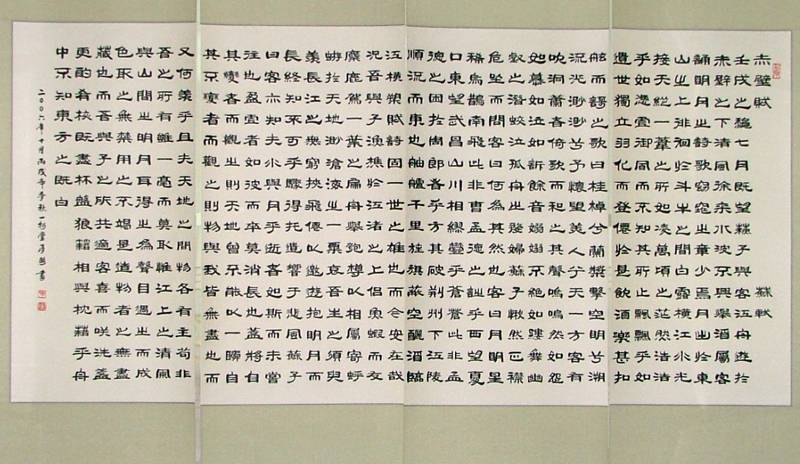 赤壁賦 蘇軾
壬戌之秋七月既望蘇子與客泛舟遊於
赤壁之下清風徐來水波不興舉酒屬客
誦明月之詩歌窈窕之章少焉月出於東
山之上徘徊於斗牛之間白露橫江水光
接天縱一葦之所如凌萬頃之茫然浩浩
乎如憑虛御風而不知其所止飄飄乎如
遺世獨立羽化而登僊於是飲酒樂甚扣
舷而歌之歌曰桂棹兮蘭槳擊空明兮溯
流光渺渺兮予懷望美人兮天一方客有
吹洞簫者倚歌而和之其聲嗚嗚然如怨
如慕如泣如訴餘音嫋嫋不絕如縷舞幽
壑之潛蛟泣孤舟之嫠婦蘇子愀然正襟
危坐而問客曰何為其然也客曰月明星
稀烏鵲南飛此非曹孟德之詩乎西望夏
口東望武昌山川相繆鬱乎蒼蒼此非孟
德之困於周郎者乎方其破荊州下江陵
順流而東也舳艫千里旌旗蔽空釃酒臨
江橫槊賦詩固一世之雄也而今安在哉
況吾與子漁樵於江渚之上侶魚蝦而友
麋鹿駕一葉之扁舟舉匏樽以相屬寄
蜉蝣於天地渺滄海之一粟哀吾生之須臾
羨長江之無窮挾飛僊以遨遊抱明月而
長終知不可乎驟得托遺響於悲風蘇子
曰客亦知夫水與月乎逝者如斯而未嘗
往也盈虛者如彼而卒莫消長也蓋將自
其變者而觀之則天地曾不能以一瞬自
其不變者而觀之則物與我皆無盡也而
又何羨乎且夫天地之間物各有主苟非
吾之所有雖一毫而莫取惟江上之清風
與山間之明月耳得之而為聲目遇之而成
色取之無禁用之不竭是造物者之無盡
藏也而吾與子之所共適客喜而笑洗盞
更酌肴核既盡杯盤狼籍相與枕藉乎舟
中不知東方之既白
二〇〇六年十月丙戌 書